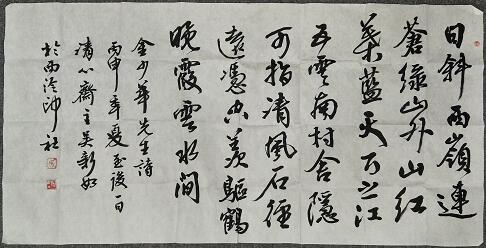 日斜西嶺連
蒼綠山外山紅
葉藍天下之江
五雲南村舍隱
可指清風石徑
遠憑空羨驅鶴
晚霞雲水間
金少華先生詩
丙申年夏至後一日
清心齋主吳新如
於西泠印社